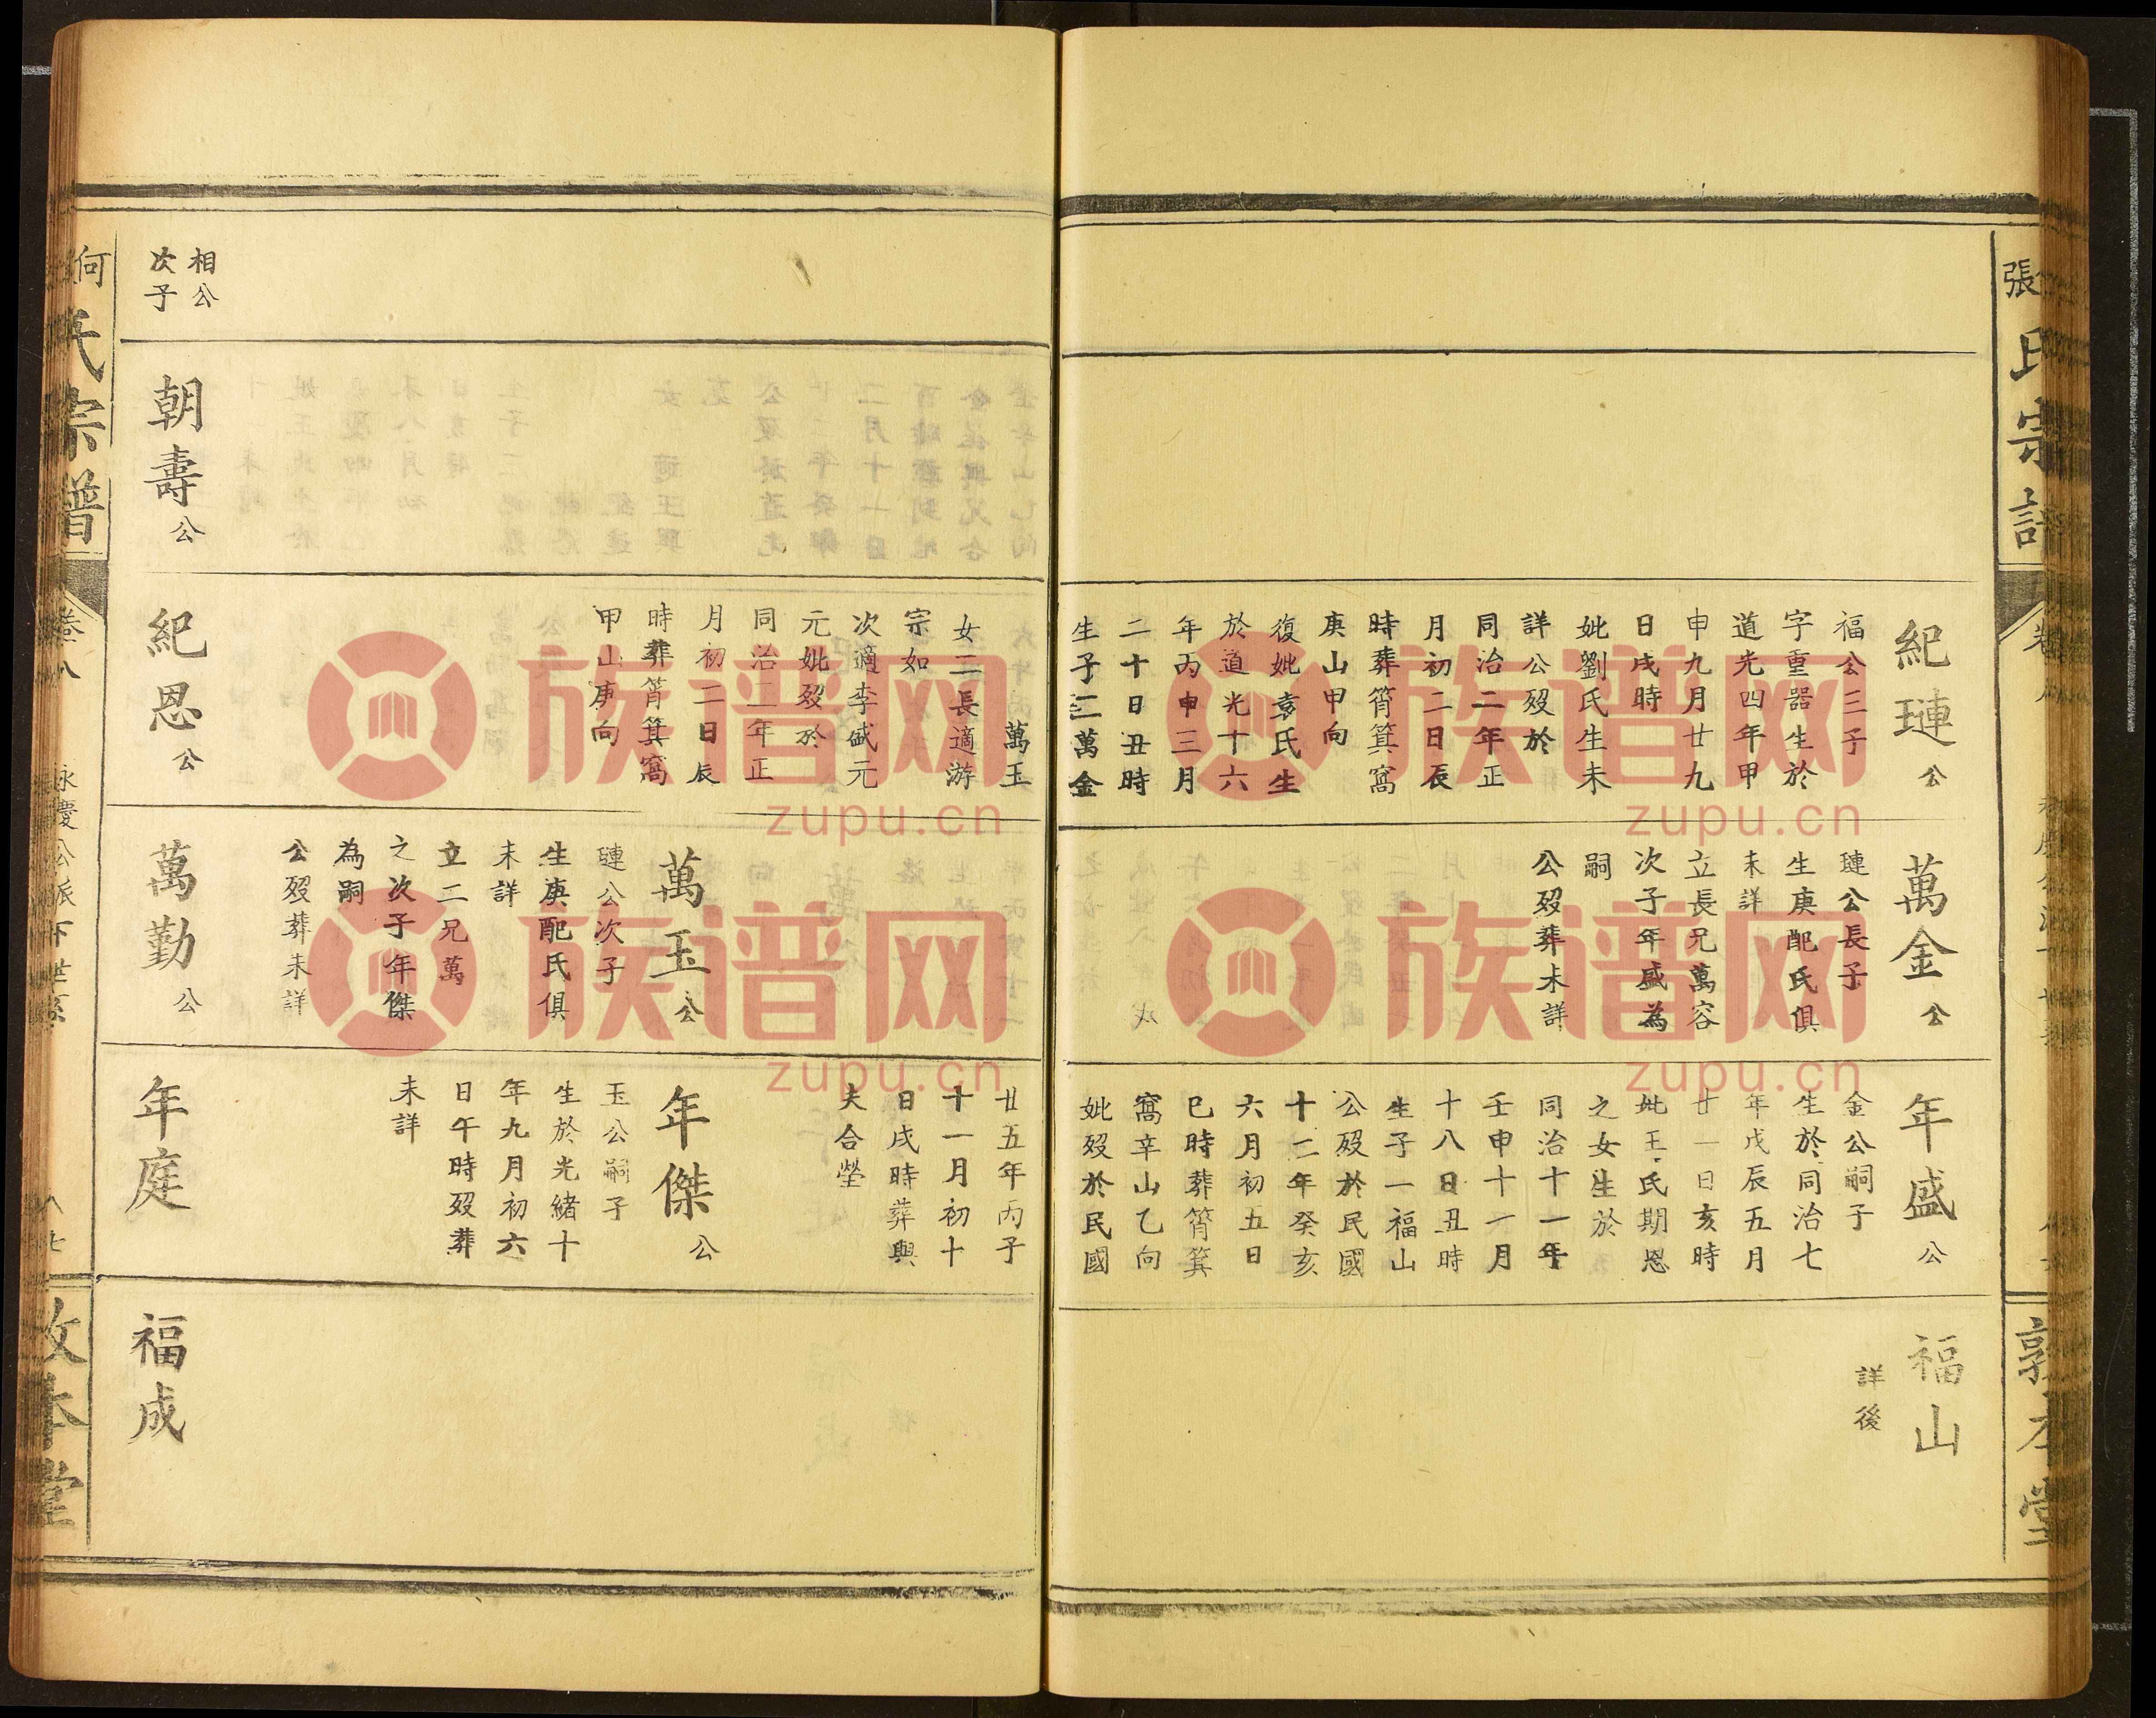 張氏宗譜
敦本堂
紀璉公
福公三子
字重器生於
道光四年甲
申九月廿九
日戌時
妣劉氏生未
詳公歿於
同治二年正
月初二日辰
時葬筲箕窩
庚山甲向
復妣袁氏生
於道光十六
年丙申三月
二十日丑時
生子二萬金
萬玉
女二長適游
宗如
次適李斌元
元妣歿於
同治二年正
月初二日辰
時葬筲箕窩
甲山庚向
萬金公
璉公長子
生庚配氏俱
未詳
立長兄萬容
次子年盛為
嗣
公歿葬未詳
萬玉公
璉公次子
生庚配氏俱
未詳
立二兄萬
之次子年傑
為嗣
公歿葬未詳
年盛公
金公嗣子
生於同治七
年戊辰五月
廿一日亥時
妣王氏期恩
之女生於
同治十一年
壬申十一月
十八日丑時
生子一福山
公歿於民國
十二年癸亥
六月初五日
巳時葬筲箕
窩辛山乙向
妣歿於民國
廿五年丙子
十一月初十
日戌時葬與
夫合塋
年傑公
玉公嗣子
生於光緒十
年九月初六
日午時歿葬
未詳
福山
詳後
相公
次子
朝壽公
紀恩公
萬勤公
年庭
福成
何氏宗譜
卷八
永慶公派下世系
八七
敦本堂
族谱网
zupu.cn
族谱网
zupu.cn
族谱网
zupu.cn
族谱网
zupu.cn